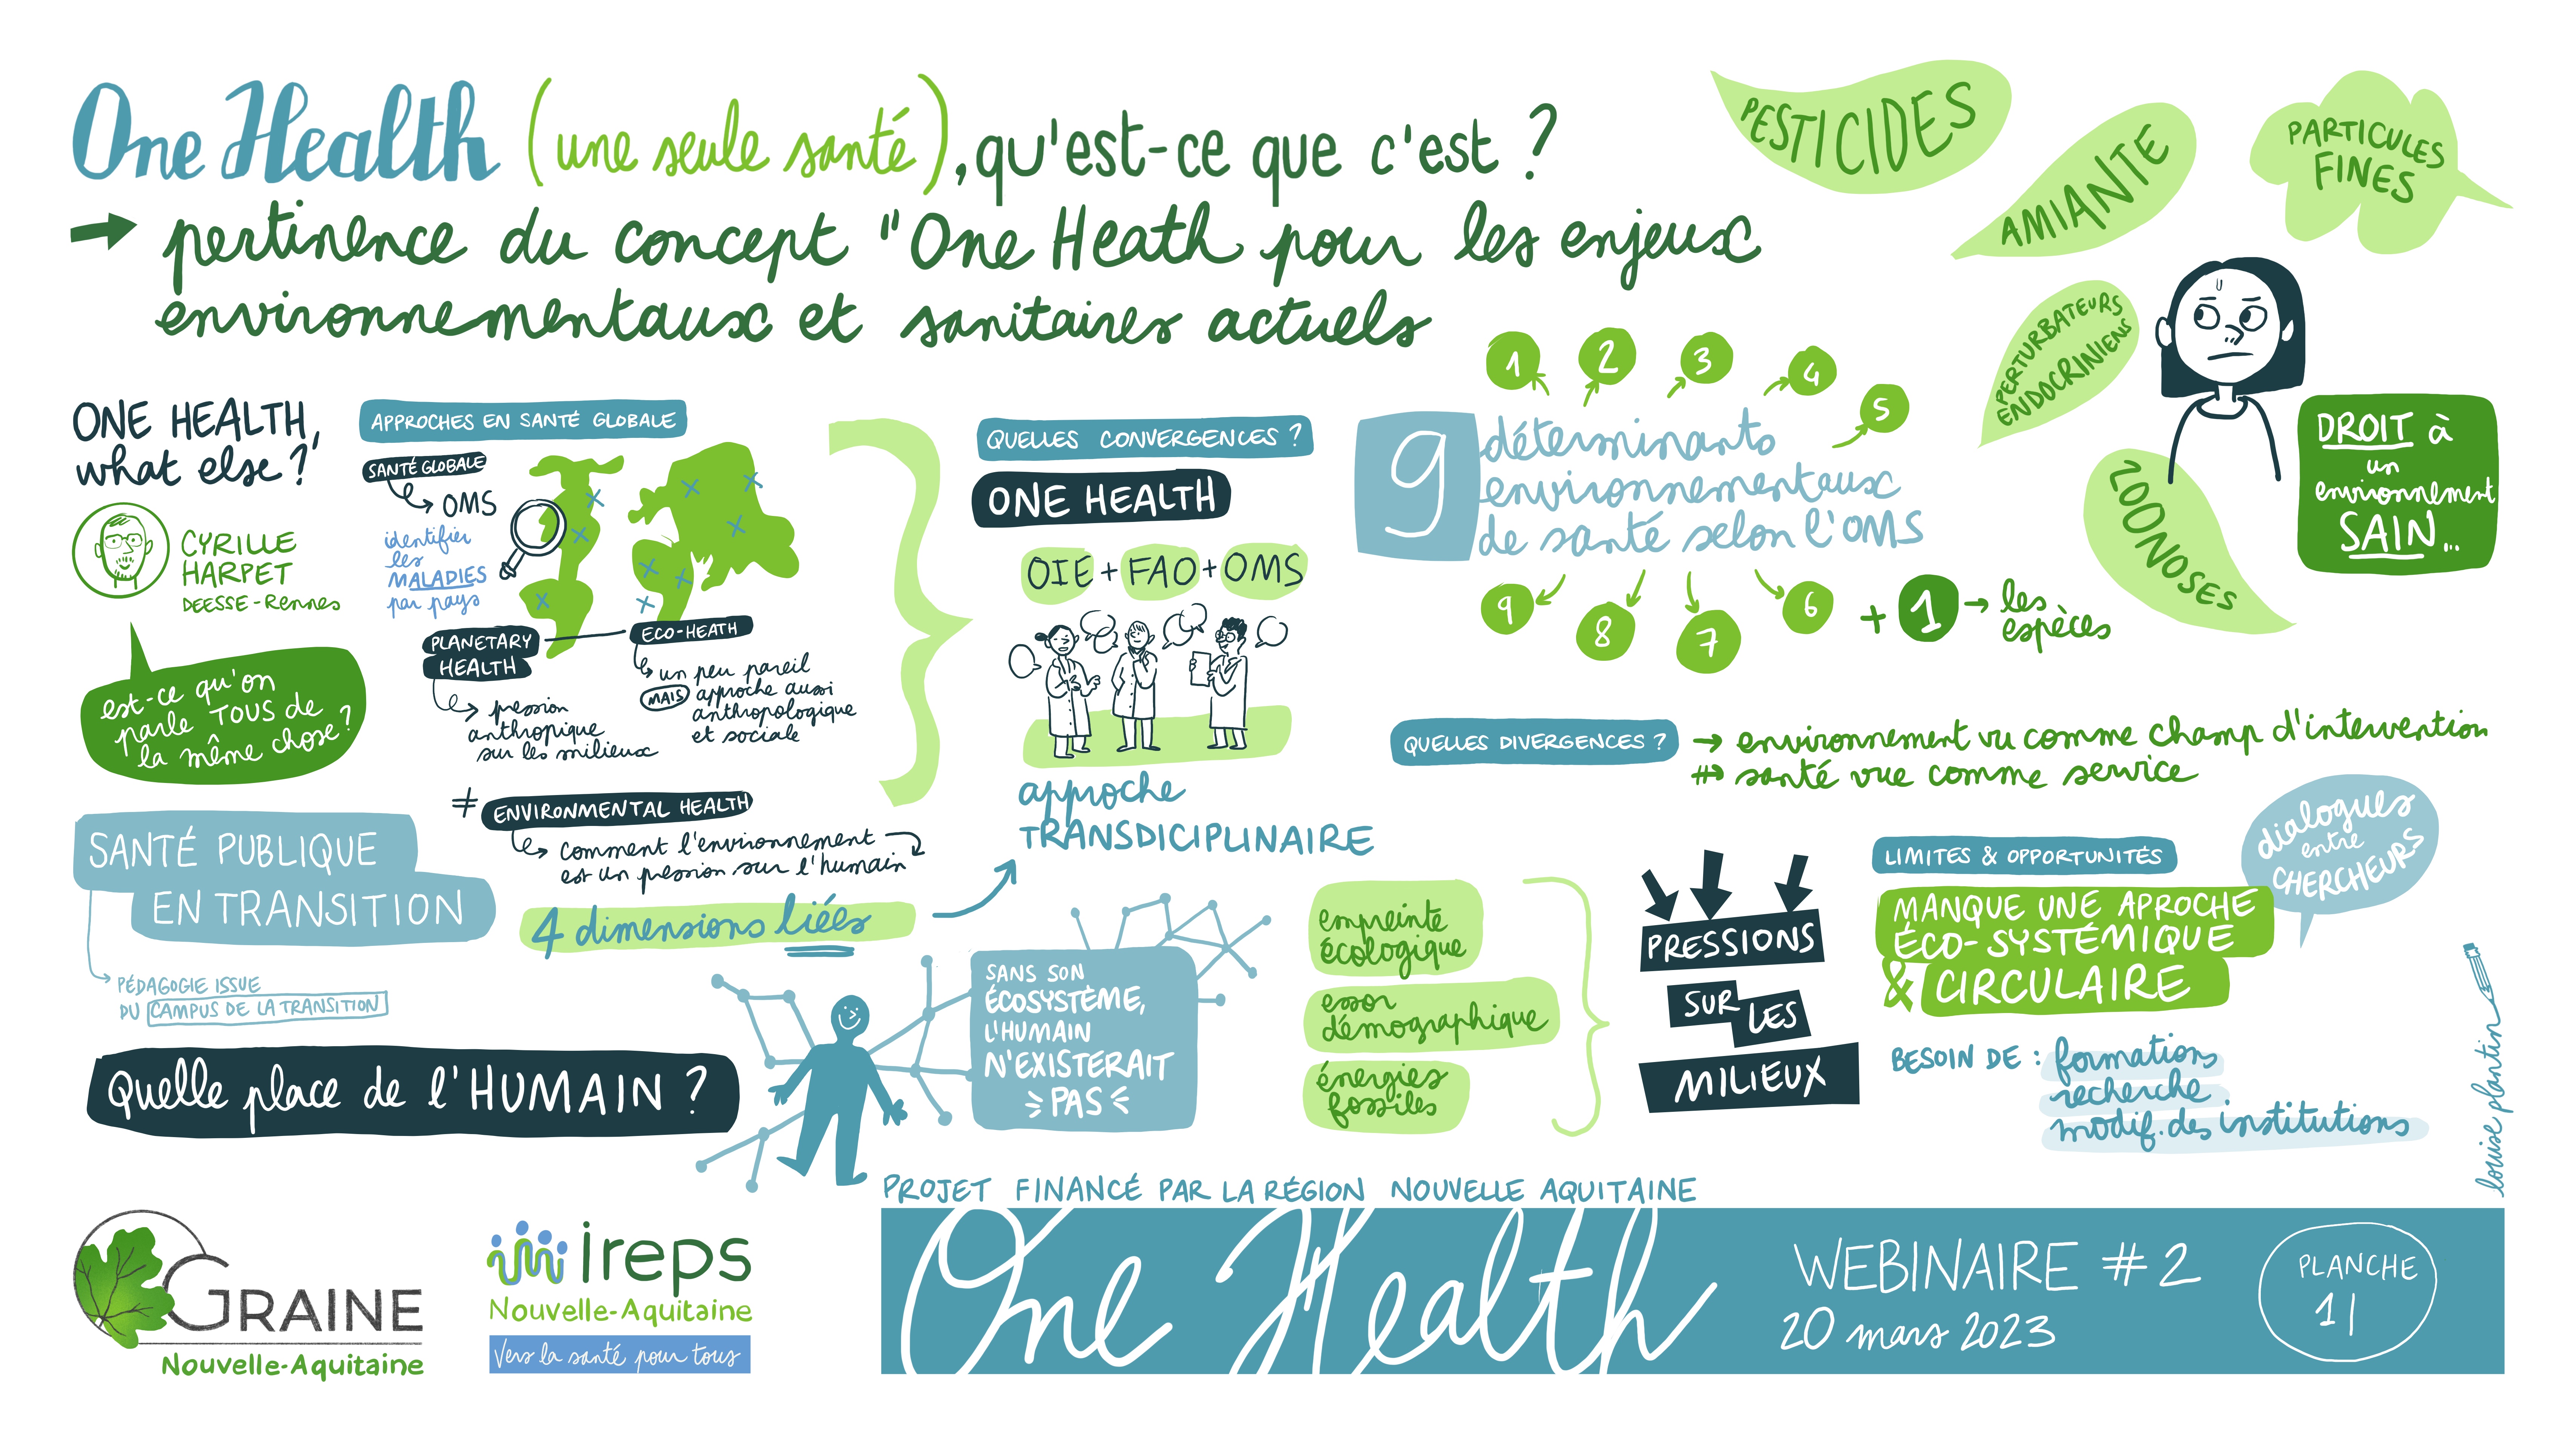 One Health (une seule santé), qu'est-ce que c'est ?
→ pertinence du concept "One Heath pour les enjeux
environnementaux et sanitaires actuels
PESTICIDES
AMIANTE
PARTICULES
FINES
PERTURBATEURS
ENDOCRINIENS
ZOONOSES
DROIT à
un
environnement
SAIN...
ONE HEALTH,
what else ?
CYRILLE
HARPET
DEESSE-Rennes
est-ce qu'on
parle TOUS de
la même chose ?
APPROCHES EN SANTÉ GLOBALE
SANTÉ GLOBALE
→ OMS
identifier
les
MALADIES
par pays
PLANETARY
HEALTH
→ pression
anthropique
sur les milieux
ECO-HEATH
↳ un peu pareil
MAIS approche aussi
anthropologique
et sociale
≠ ENVIRONMENTAL HEALTH
↳ comment l'environnement
est un pression sur l'humain
4 dimensions liées
QUELLES CONVERGENCES ?
ONE HEALTH
OIE + FAO + OMS
approche
TRANSDICIPLINAIRE
1
2
3
4
5
9 déterminants
environnementaux
de santé selon l'OMS
9
8
7
6
+ 1 → les
espèces
QUELLES DIVERGENCES ?
→ environnement vu comme champ d'intervention
≠> santé vue comme service
SANTÉ PUBLIQUE
EN TRANSITION
→ PÉDAGOGIE ISSUE
DU CAMPUS DE LA TRANSITION
Quelle place de l'HUMAIN ?
SANS SON
ÉCOSYSTÈME,
L'HUMAIN
N'EXISTERAIT
PAS
empreinte
écologique
essor
démographique
énergies
fossiles
PRESSIONS
SUR LES
MILIEUX
LIMITES & OPPORTUNITÉS
MANQUE UNE APROCHE
ÉCO-SYSTÉMIQUE
& CIRCULAIRE
dialogues
entre
CHERCHEURS
BESOIN DE : formations
recherche
modif. des institutions
louise plantin
PROJET FINANCÉ PAR LA RÉGION NOUVELLE AQUITAINE
GRAINE
Nouvelle-Aquitaine
ireps
Nouvelle-Aquitaine
Vers la santé pour tous
One Health
WEBINAIRE #2
20 mars 2023
PLANCHE
1|